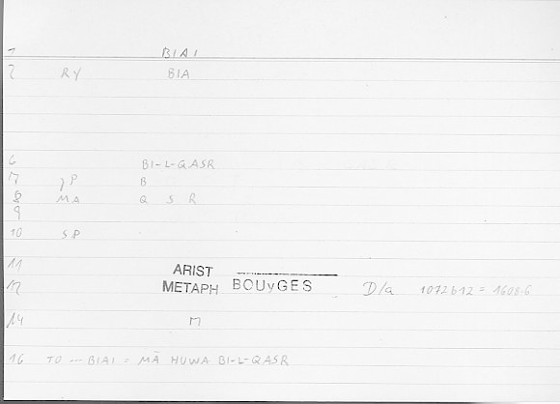 1 BIAI
2 RY BIA
6 BI-L-QASR
7 P B
8 MA Q S R
9
10 SP
11 ARIST
12 METAPH BOUyGES D/a 1072b12 = 1608.6
14 M
16 TO --- BIAI = MĀ HUWA BI-L-QASR